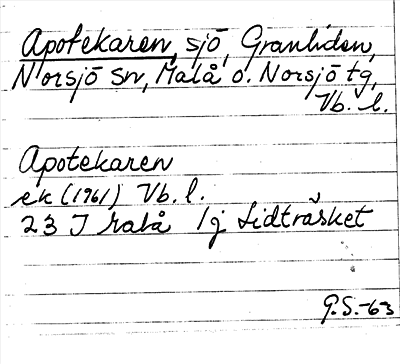 Apotekaren, sjö, Granliden,
Norsjö sn, Malå o. Norsjö tg,
Vb. l.
Apotekaren
ek (1961) Vb. l.
23 I Malå 1j Lidträsket
G.S.-63